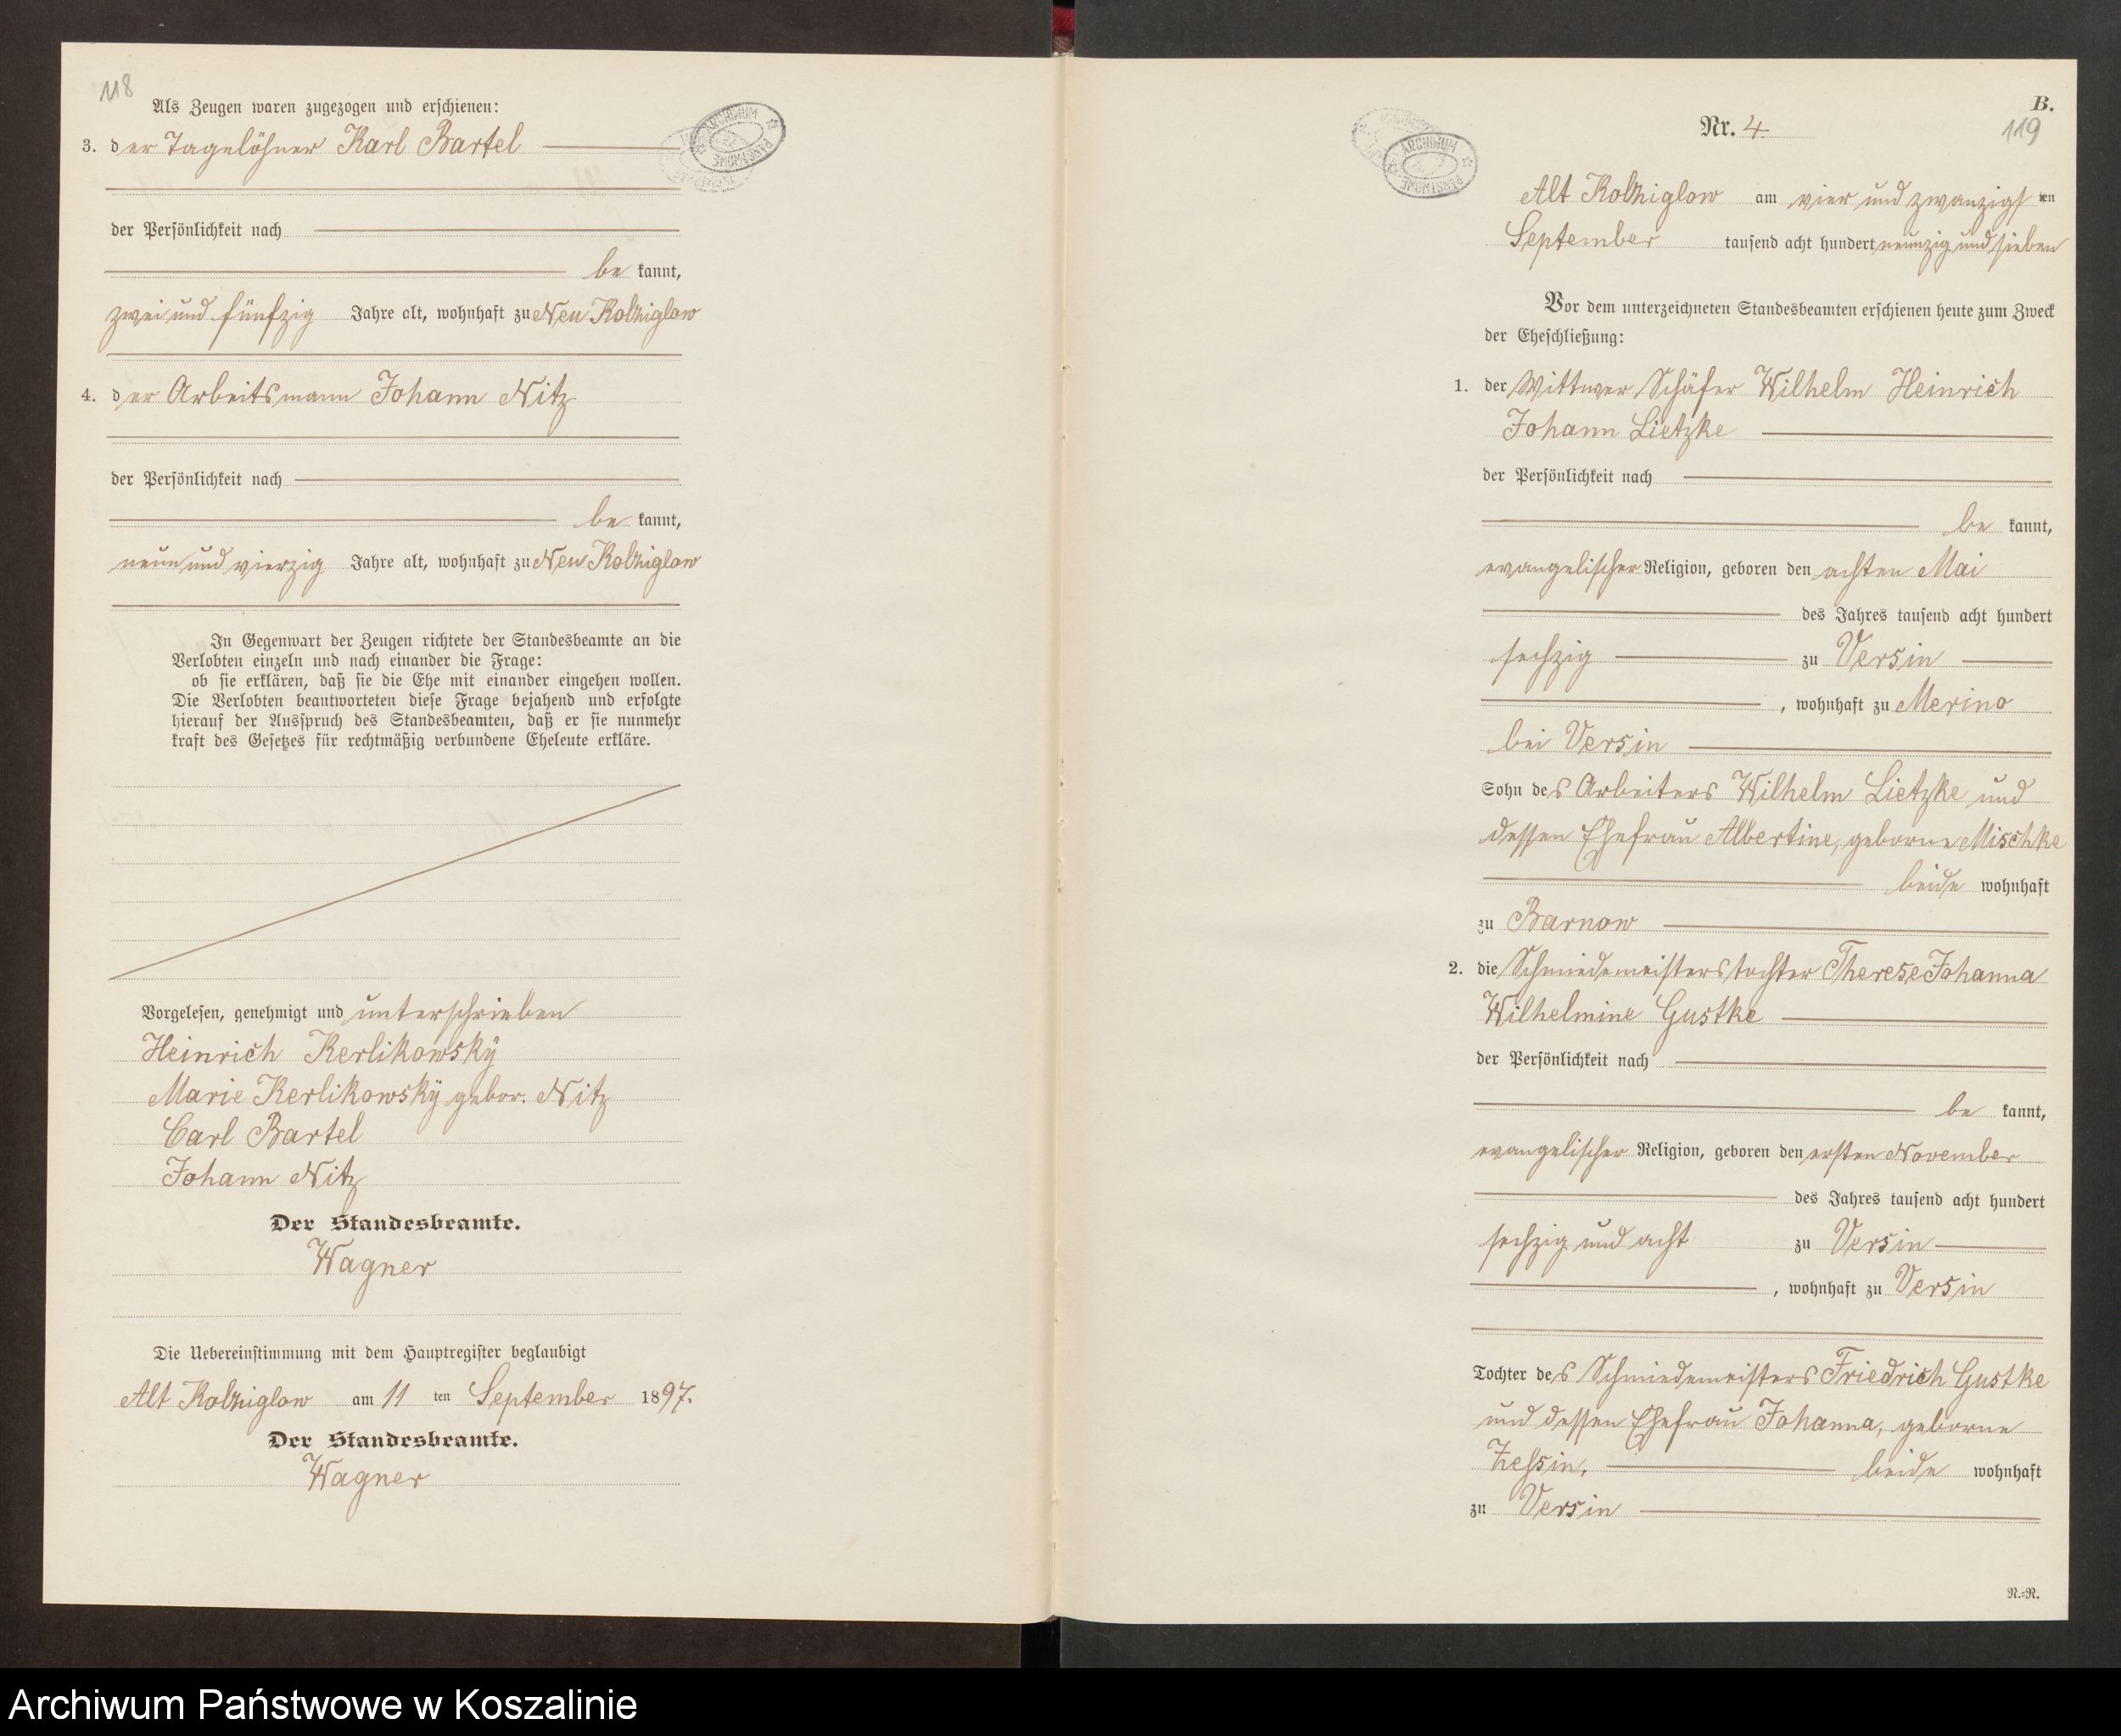 118
Als Zeugen waren zugezogen und erschienen:
3. der Tagelöhner Karl Bartel
der Persönlichkeit nach
be kannt,
zwei und fünfzig Jahre alt, wohnhaft zu Neu Kolziglow
4. der Arbeitsmann Johann Nitz
der Persönlichkeit nach
be kannt,
neun und vierzig Jahre alt, wohnhaft zu Neu Kolziglow
In Gegenwart der Zeugen richtete der Standesbeamte an die
Verlobten einzeln und nach einander die Frage:
ob sie erklären, daß sie die Ehe mit einander eingehen wollen.
Die Verlobten beantworteten diese Frage bejahend und erfolgte
hierauf der Ausspruch des Standesbeamten, daß er sie nunmehr
kraft des Gesetzes für rechtmäßig verbundene Eheleute erkläre.
Vorgelesen, genehmigt und unterschrieben
Heinrich Kerlikowskÿ
Marie Kerlikowskÿ gebor. Nitz
Carl Bartel
Johann Nitz
Der Standesbeamte.
Wagner
Die Uebereinstimmung mit dem Hauptregister beglaubigt
Alt Kolziglow am 11 ten September 1897.
Der Standesbeamte.
Wagner
ARCHIWUM PAŃSTWOWE
B.
Nr. 4
119
ARCHIWUM PAŃSTWOWE
Alt Kolziglow am vier und zwanzigsten
September tausend acht hundert neunzig und sieben
Vor dem unterzeichneten Standesbeamten erschienen heute zum Zweck
der Eheschließung:
1. der Wittwer Schäfer Wilhelm Heinrich
Johann Lietzke
der Persönlichkeit nach
be kannt,
evangelischer Religion, geboren den achten Mai
des Jahres tausend acht hundert
sechzig zu Versin
, wohnhaft zu Merino
bei Versin
Sohn des Arbeiters Wilhelm Lietzke und
dessen Ehefrau Albertine, geborne Mischke
beide wohnhaft
zu Barnow
2. die Schmiedemeisterstochter Therese Johanna
Wilhelmine Gustke
der Persönlichkeit nach
be kannt,
evangelischer Religion, geboren den ersten November
des Jahres tausend acht hundert
sechzig und acht zu Versin
, wohnhaft zu Versin
Tochter des Schmiedemeisters Friedrich Gustke
und dessen Ehefrau Johanna, geborne
beide wohnhaft
zu Versin
R.=R.
Archiwum Państwowe w Koszalinie